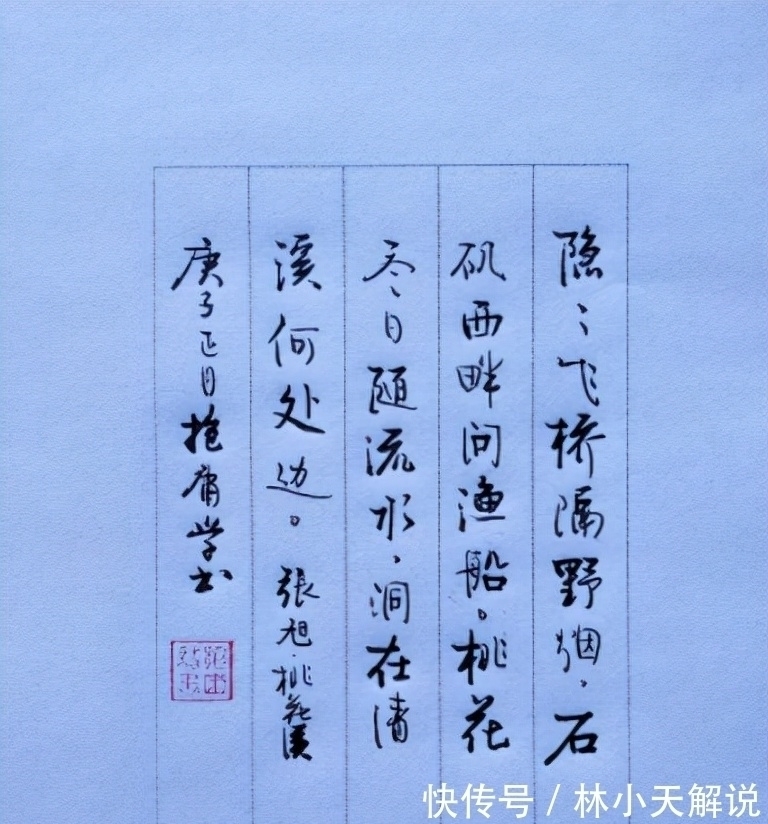 隐〻飞桥隔野烟，石
矶西畔问渔船。桃花
尽日随流水，洞在清
溪何处边。張旭·桃花溪
庚子正月抱庸学书
快传号 / 林小天解说